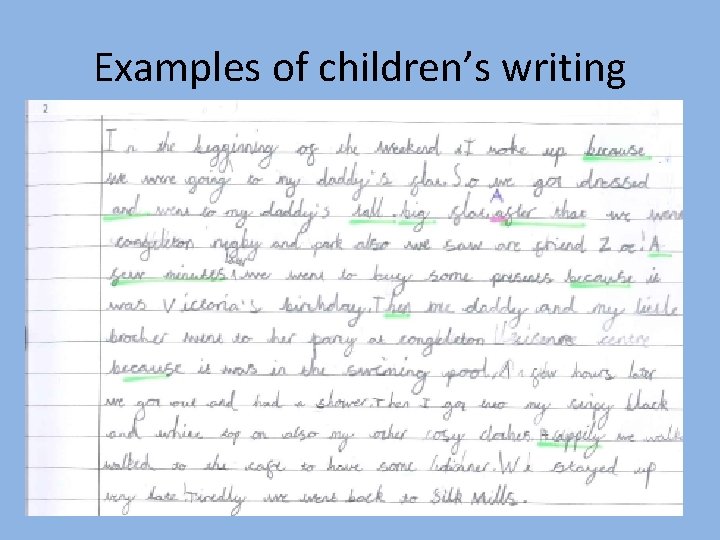 Examples of children's writing
2
In the begginning of the weekend I woke up because
we were going to my daddy's flat. So we got dressed
A
and went to my daddy's tall big flat. after that we went
congleton rugby and park also we saw are friend Zoe! A
few minutes later we went to buy some presents because it
was Victoria's birthday. Then me daddy and my little
brother went to her party at congleton leisure centre
because it was in the swiming pool. A few hours later
we got out and had a shower. Then I got my stripy black
and white top on also my other cosy clothes. Happily we walk
walked to the cafe to have some dinner. We stayed up
very late tiredly we went back to Silk Mills.